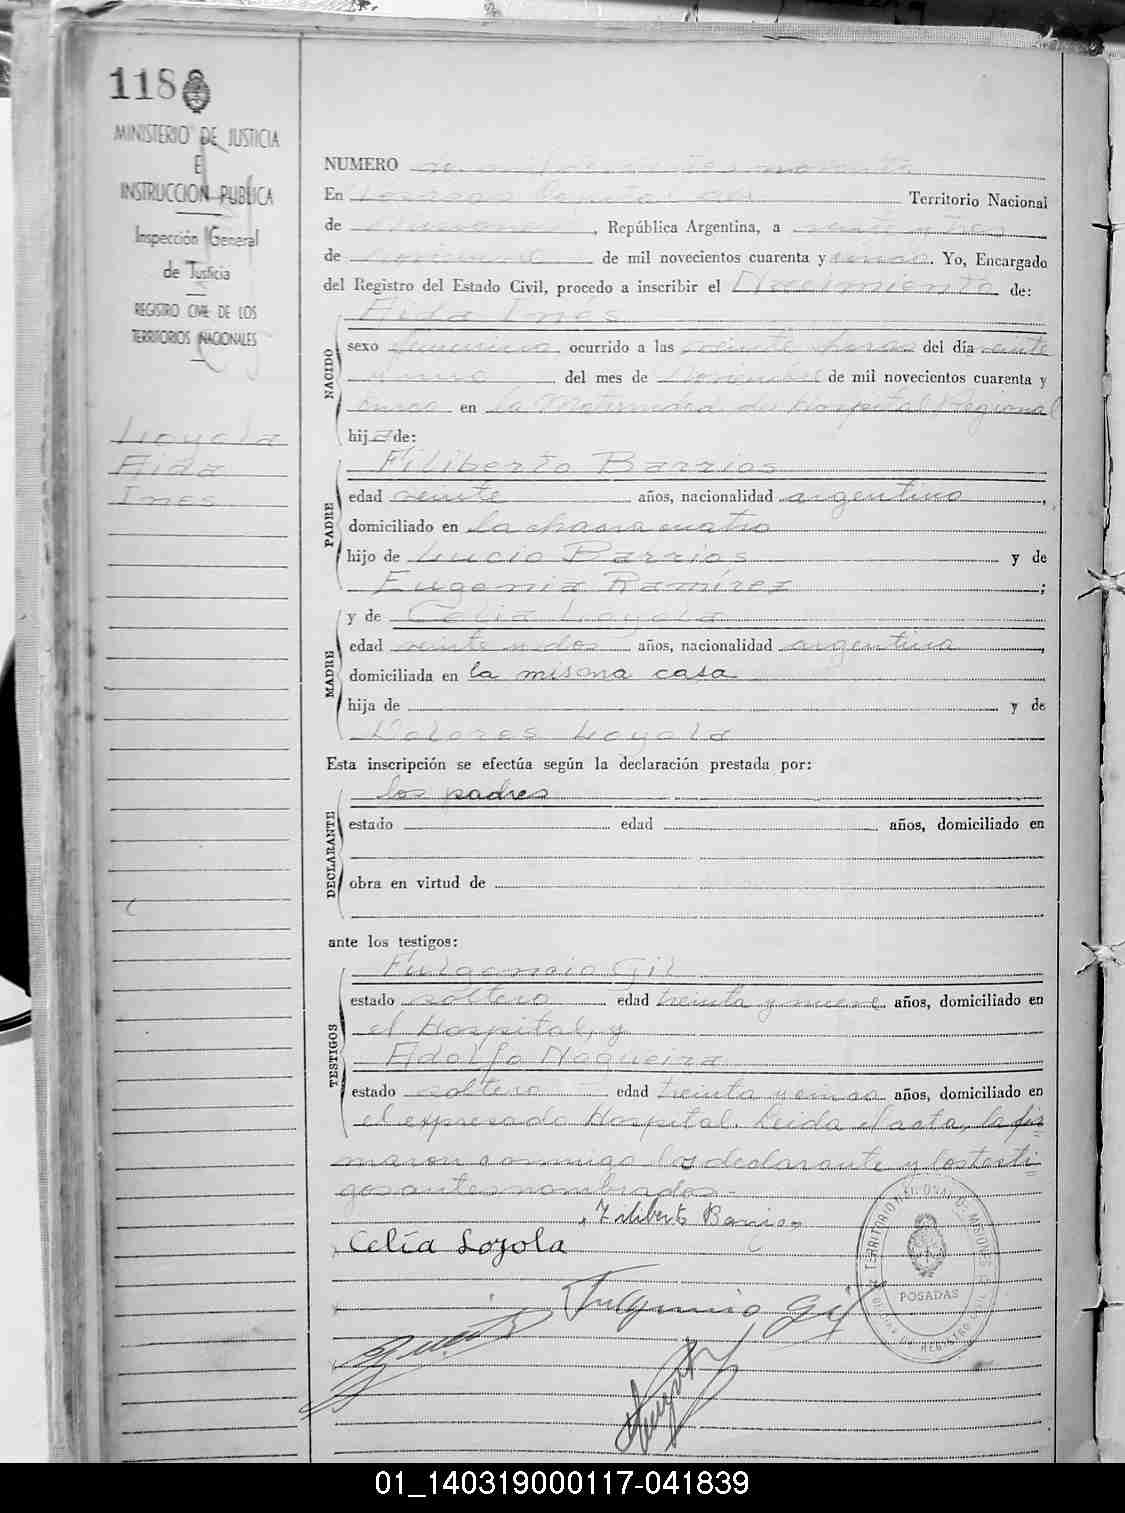 118
MINISTERIO DE JUSTICIA
E
INSTRUCCION PUBLICA
Inspección General
de Justicia
REGISTRO CIVIL DE LOS
TERRITORIOS NACIONALES
Loyola
Aida
Ines
NUMERO
En Posadas, Capital del Territorio Nacional
de Misiones, República Argentina, a veinte y tres
de noviembre de mil novecientos cuarenta y cinco. Yo, Encargado
del Registro del Estado Civil, procedo a inscribir el Nacimiento de:
NACIDO
Aida Ines
sexo femenino ocurrido a las veinte horas del día veinte
del mes de Noviembre de mil novecientos cuarenta y
cinco en la Maternidad del Hospital Regional
hija de:
PADRE
Filiberto Barrios
edad veinte años, nacionalidad argentino,
domiciliado en la chacra cuatro
hijo de Lucio Barrios y de
Eugenia Ramírez;
MADRE
y de Celia Loyola
edad veinte y dos años, nacionalidad argentina,
domiciliada en la misma casa
hija de y de
Dolores Loyola
Esta inscripción se efectúa según la declaración prestada por:
DECLARANTE
los padres
estado edad años, domiciliado en
obra en virtud de
ante los testigos:
TESTIGOS
Fulgencio Gil
estado soltero edad treinta y nueve años, domiciliado en
el Hospital, y
Adolfo Nogueira
estado soltero edad treinta y cinco años, domiciliado en
el expresado Hospital. Leida el acta, la fir=
maron conmigo los declarante y los testi=
gos antes nombrados.-
Filiberto Barrios
Celía Loyola
Fulgencio Gil
TERRITORIO NACIONAL DE MISIONES
POSADAS
01_140319000117-041839